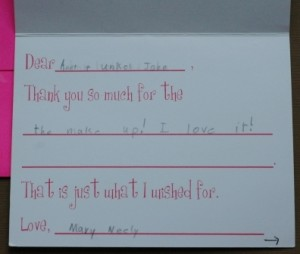 Dear Aunt + unkel Jake,
Thank you so much for the
the make up! I love it!
.
That is just what I wished for.
Love, Mary Neely